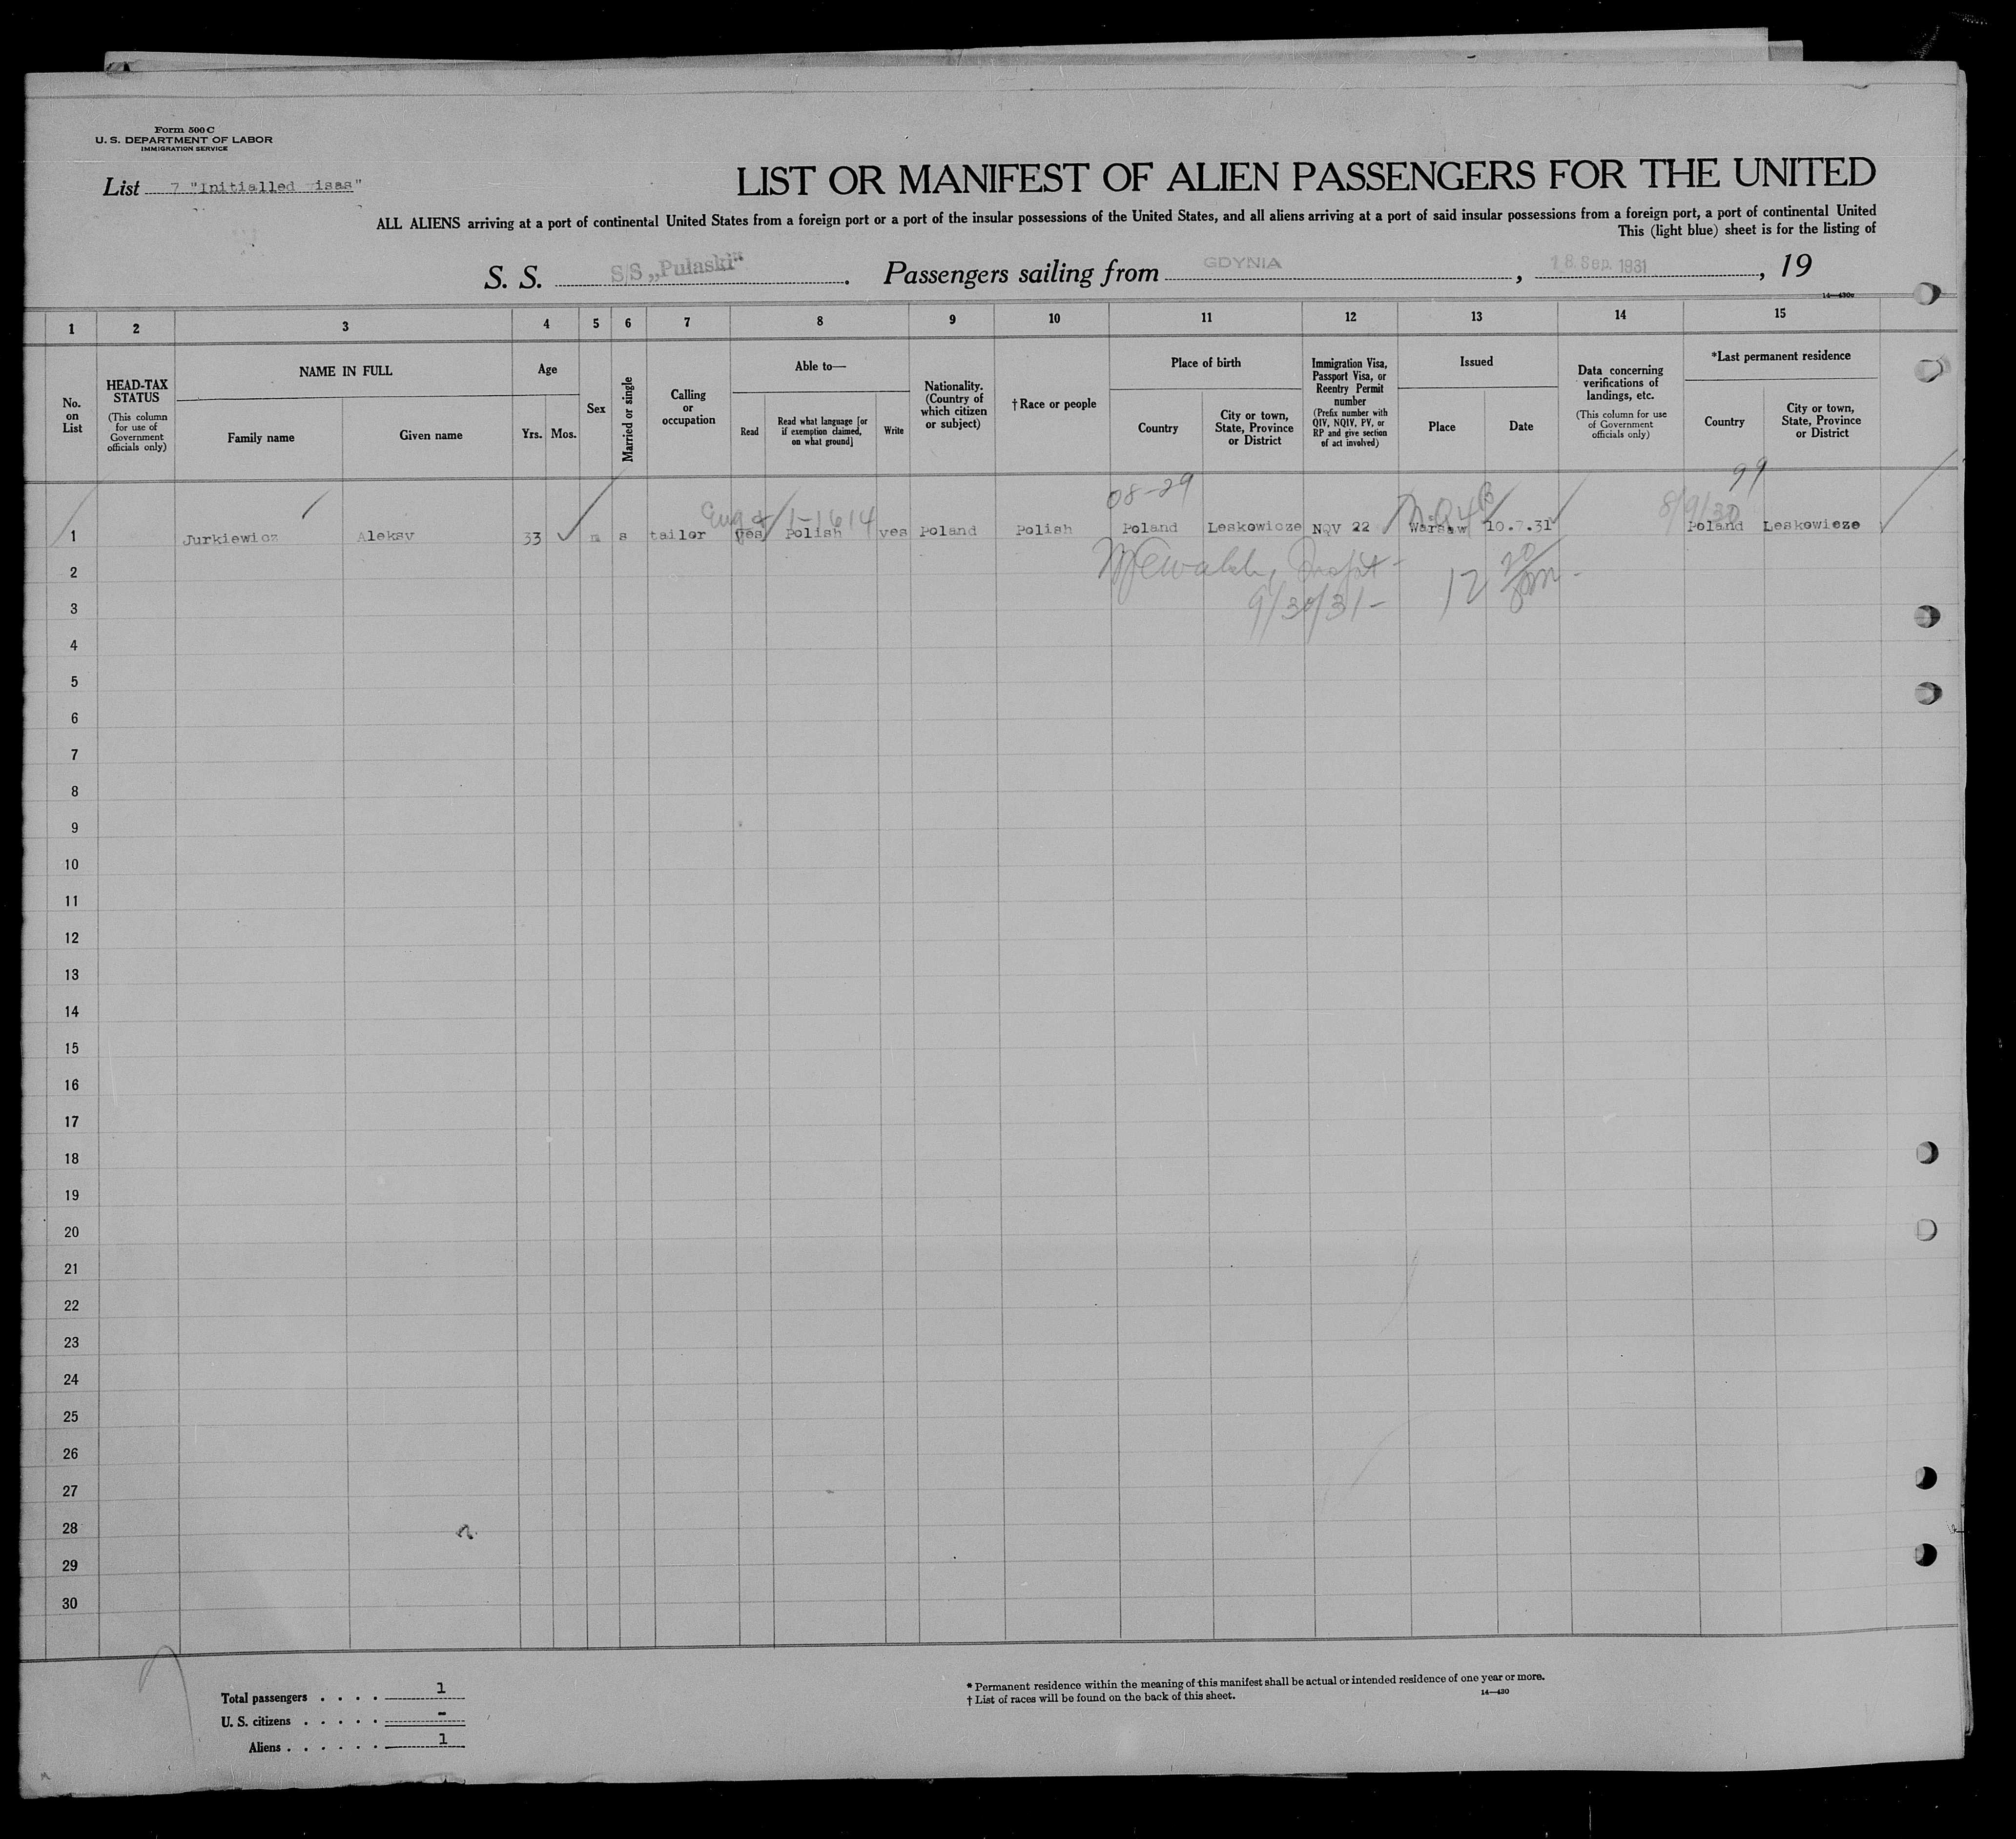 Form 500 C
U. S. DEPARTMENT OF LABOR
IMMIGRATION SERVICE
List 7 "Initialled isas"
LIST OR MANIFEST OF ALIEN PASSENGERS FOR THE UNITED
ALL ALIENS arriving at a port of continental United States from a foreign port or a port of the insular possessions of the United States, and all aliens arriving at a port of said insular possessions from a foreign port, a port of continental United
This (light blue) sheet is for the listing of
S. S. S/S „Pulaski“. Passengers sailing from GDYNIA, 18. Sep. 1931, 19
14—430a
1 2 3 4 5 6 7 8 9 10 11 12 13 14 15
No. on List
HEAD-TAX STATUS
(This column for use of Government officials only)
NAME IN FULL
Family name
Given name
Age
Yrs. Mos.
Sex
Married or single
Calling or occupation
Able to—
Read
Read what language [or if exemption claimed, on what ground]
Write
Nationality. (Country of which citizen or subject)
†Race or people
Place of birth
Country
City or town, State, Province or District
Immigration Visa, Passport Visa, or Reentry Permit number
(Prefix number with QIV, NQIV, PV, or RP and give section of act involved)
Issued
Place
Date
Data concerning verifications of landings, etc.
(This column for use of Government officials only)
*Last permanent residence
Country
City or town, State, Province or District
08-29
99
1-1614
8/9/30
1 Jurkiewicz Aleksy 33 m s tailor yes Polish yes Poland Polish Poland Leskowicze NQV 22 Warsaw 10.7.31 Poland Leskowicze
2
9/30/31-
12
3
4
5
6
7
8
9
10
11
12
13
14
15
16
17
18
19
20
21
22
23
24
25
26
27
28
29
30
Total passengers . . . . 1
U. S. citizens . . . . . -
Aliens . . . . . . 1
* Permanent residence within the meaning of this manifest shall be actual or intended residence of one year or more.
† List of races will be found on the back of this sheet.
14—430